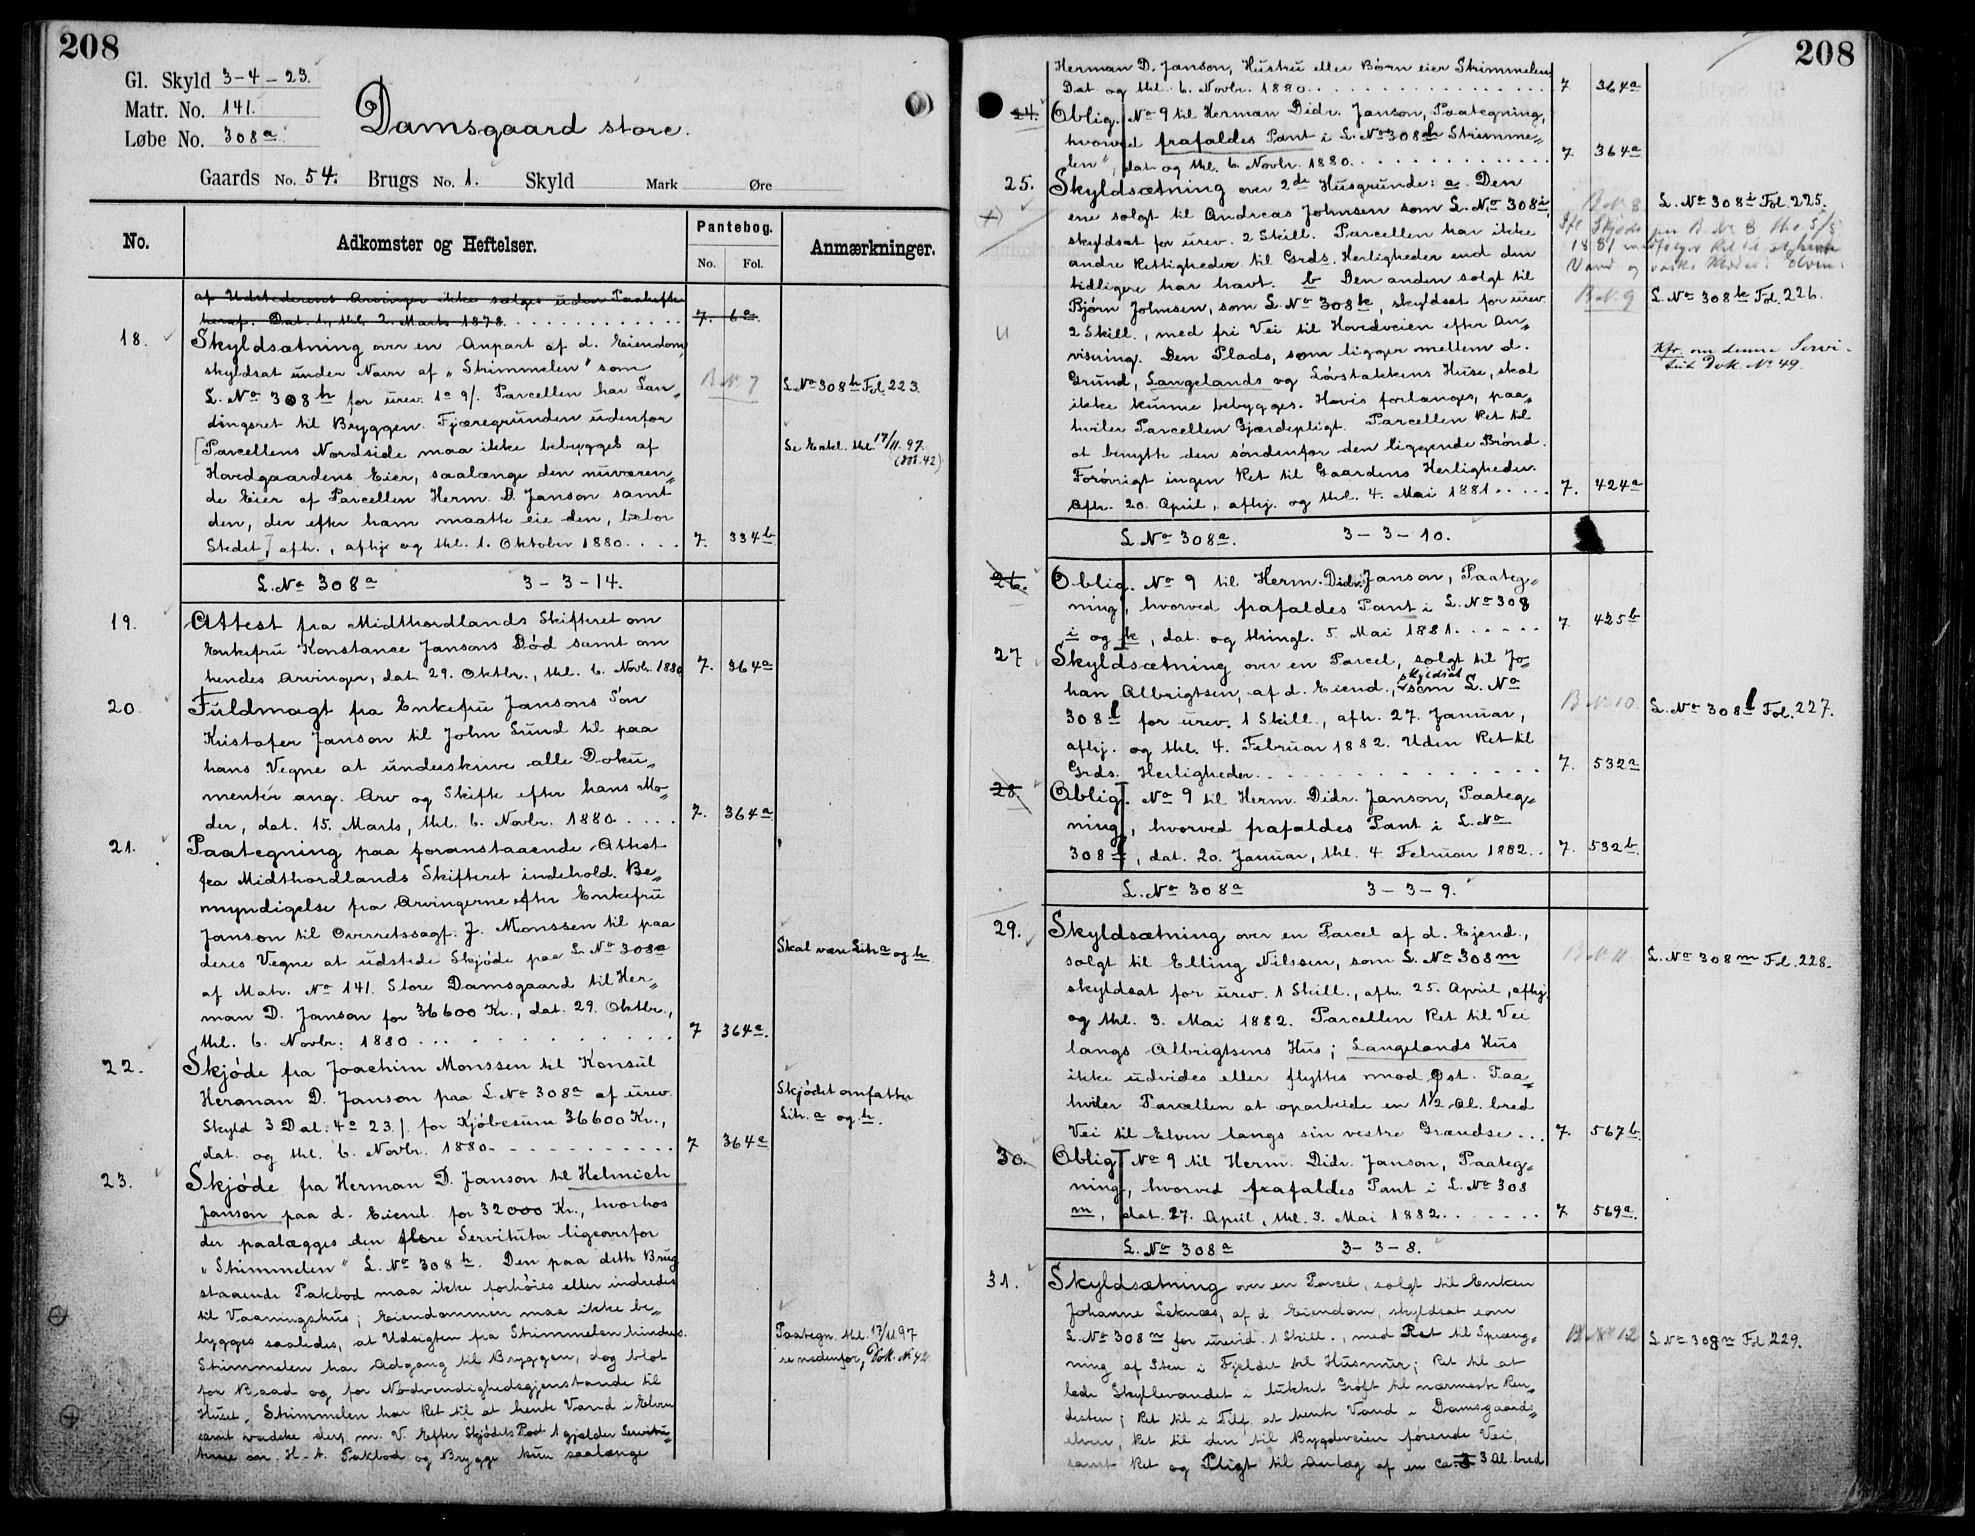 208
Gl. Skyld 3-4-23.
Matr. No. 141.
Løbe No. 308a
Damsgaard store.
Gaards No. 54. Brugs No. 1. Skyld Mark Øre
No. Adkomster og Heftelser. Pantebog. Anmærkninger.
No. Fol.
af Udstederens Arvinger ikke sælges uden Paaheftelse
heraf. Dat. 1, thl. 2. Marts 1878. 7. 6a
18. Skyldsætning over en Anpart af d. Eiendom,
skyldsat under Navn af „Strimmelen“ som
L. No 308h for urev. 1o 9/. Parcellen har Lan- B.No 7 L.No 308h Fol. 223.
dingsret til Bryggen. Fjæregrunden udenfor
[Parcellens Nordside maa ikke bebygges af Se Erkl. thl. 17/11. 97. (Dok. 42)
Hovedgaardens Eier, saalænge den nuværen-
de Eier af Parcellen Herm. D. Janson samt
den, der efter ham maatte eie den, bebor
Stedet] afh., afhj. og thl. 1. Oktober 1880. 7. 334b
L.No 308a 3-3-14.
19. Attest fra Midthordlands Skifteret om
Enkefru Konstance Jansons Død samt om
hendes Arvinger, dat. 29. Oktbr., thl. 6. Novbr. 1880 7. 364a
20. Fuldmagt fra Enkefru Jansons Søn
Kristofer Janson til John Lund til paa
hans Vegne at underskrive alle Doku-
menter ang. Arv og Skifte efter hans Mo-
der, dat. 15. Marts, thl. 6. Novbr. 1880. 7. 364a
21. Paategning paa foranstaaende Attest
fra Midthordlands Skifteret indehold. Be-
myndigelse fra Arvingerne efter Enkefru
Janson til Overretssagf. J. Monssen til paa
deres Vegne at udstede Skjøde paa L.No 308a Skal være Litr. a og h
af Matr. No 141. Store Damsgaard til Her-
man D. Janson for 36600 Kr., dat. 29. Oktbr.,
thl. 6. Novbr. 1880 7 364a.
22. Skjøde fra Joachim Monssen til Konsul
Herman D. Janson paa L.No 308a af urev. Skjødet omfatter
Skyld 3 Dal. 4o 23/. for Kjøbesum 36600 Kr., Litr. a og h.
dat. og thl. 6. Novbr. 1880. 7 364a
23. Skjøde fra Herman D. Janson til Helmich
Janson paa d. Eiend. for 32000 Kr., hvorhos
der paalægges den flere Servituter ligeoverfor
„Strimmelen“ L.No 308h. Den paa dette Brug
staaende Pakbod maa ikke forhøies eller indredes
til Vaaningshus; Eiendommen maa ikke be-
bygges saaledes, at Udsigten fra Strimmelen hindres. Paategn. thl. 17/11 97
Strimmelen har Adgang til Bryggen, dog blot se nedenfor, Dok. No 42
for Baad og for Nødvendighedsgjenstande til
Huset. Strimmelen har Ret til at hente Vand i Elven
samt vaske der, m. V. Efter Skjødets Post 1 gjælder Servitu-
terne an. H. t. Pakbod og Brygge kun saalænge
208
Herman D. Janson, Hustru eller Børn eier Strimmelen.
Dat. og thl. 6. Novbr. 1880. 7 364a
24. Oblig. No 9 til Herman Didr. Janson, Paategning,
hvorved frafaldes Pant i L.No 308h Strimme-
len“, dat. og thl. 6. Novbr. 1880. 7. 364a
25. Skyldsætning over 2de Husgrunde: a. Den
ene solgt til Andreas Johnsen som L.No 308i, B.No 8 L.No 308i Fol. 225.
skyldsat for urev. 2 Skill. Parcellen har ikke
andre Rettigheder til Grds. Herligheder end den
tidligere har havt. b Den anden solgt til
Bjørn Johnsen, som L.No 308k, skyldsat for urev. B.No 9 L.No 308k Fol. 226.
2 Skill., med fri Vei til Hovedveien efter An-
visning. Den Plads, som ligger mellem d. Kfr. om denne Servi-
Grund, Langelands og Løvstakkens Huse, skal tut Dok. No 49.
ikke kunne bebygges. Hvis forlanges, paa-
hviler Parcellen Gjærdepligt. Parcellen Ret til
at benytte den søndenfor den liggende Brønd.
Forøvrigt ingen Ret til Gaardens Herligheder.
Afh. 20. April, afhj. og thl. 4. Mai 1881. 7. 424a
L.No 308a. 3-3-10.
26. Oblig. No 9 til Herm. Didr. Janson, Paateg-
ning, hvorved frafaldes Pant i L.No 308
i og k, dat. og thingl. 5. Mai 1881. 7 425b
27 Skyldsætning over en Parcel, solgt til Jo-
han Albrigtsen, af d. Eiend., skyldsat som L.No
308l for urev. 1 Skill., afh. 27. Januar, B.No 10 L.No 308l Fol. 227.
afhj. og thl. 4. Februar 1882. Uden Ret til
Grds. Herligheder. 7. 532a
28. Oblig. No 9 til Herm. Didr. Janson, Paateg-
ning, hvorved frafaldes Pant i L.No
308l, dat. 20. Januar, thl. 4. Februar 1882. 7. 532b
L.No 308a 3-3-9.
29. Skyldsætning over en Parcel af d. Ejend.,
solgt til Elling Nilssen, som L.No 308m B.No 11 L.No 308m Fol. 228.
skyldsat for urev. 1 Skill., afh. 25. April, afhj.
og thl. 3. Mai 1882. Parcellen Ret til Vei
langs Albrigtsens Hus; Langelands Hus
ikke udvides eller flyttes mod Øst. Paa-
hviler Parcellen at oparbeide en 1½ Al. bred
Vei til Elven langs sin vestre Grændse... 7. 567b
30. Oblig. No 9 til Herm. Didr. Janson, Paateg-
ning, hvorved frafaldes Pant i L.No 308
m, dat. 27. April, thl. 3. Mai 1882. 7 569a.
L.No 308a 3-3-8.
31. Skyldsætning over en Parcel, solgt til Enken
Johanne Leknæs, af d. Eiendom, skyldsat som
L.No 308n for urevid. 1 Skill., med Ret til Spræng- B.No 12 L.No 308n Fol. 229.
ning af Sten i Fjeldet til Husmur; Ret til at
lede Skyllevandet i lukket Grøft til nærmeste Ren-
desten; Ret til i Fld. at hente Vand i Damsgaards-
elven, Ret til den til Bygdeveien førende Vei,
samt Ret og Pligt til Anlæg af en ca. 3 Al. bred